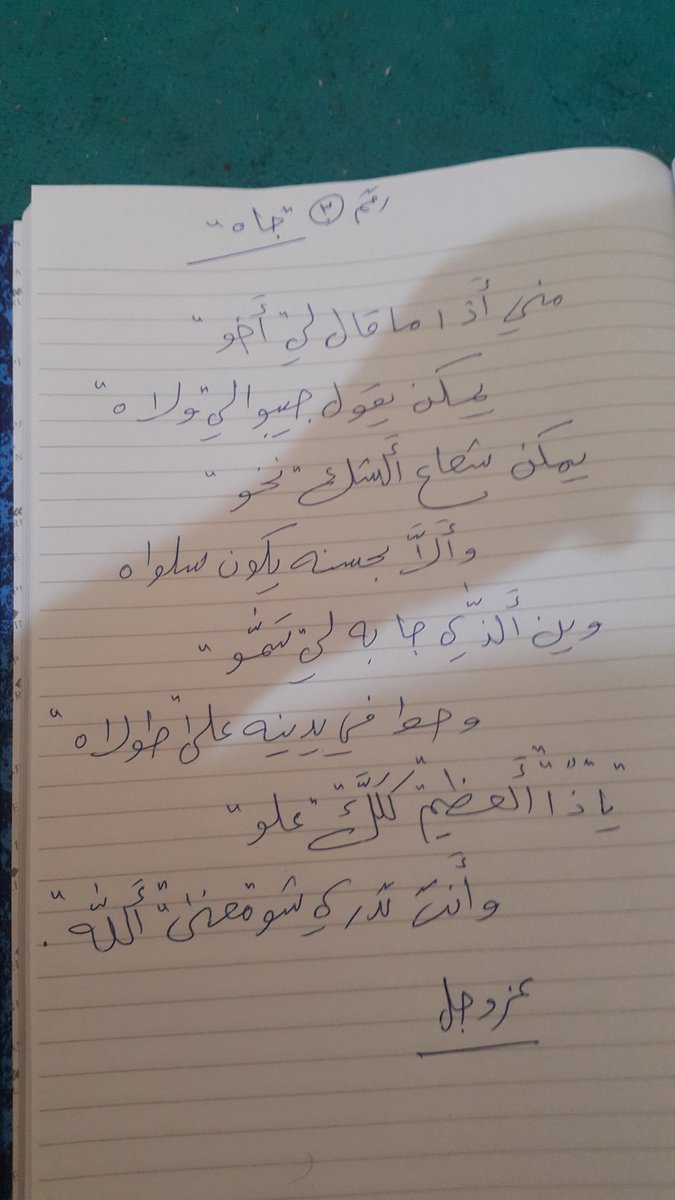 رقم ③ "جاه"
مني أَذا ما قال لي "أَخو"
يمكن يقول جيبوا لي "ولاه"
يمكن شعاع أَلشك "نخو"
وأَلاَّ بحسنه يكون سلواه
وين أَلذّي جابه لي "سَمُّو"
وحطوا في يدينه على "طولاه"
يَاذَا أَلعظيم كَلَّكْ "علو"
وأَنت تدري شو معنى "أَللّه".
عزوجل